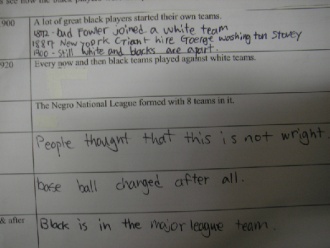 how the
900
A lot of great black players started their own teams.
1872 - bud Fower joined a white team
1887 New york Giant hire Goerge washing tun Stovey
1900 - still white and blacks are apart.
920
Every now and then black teams played against white teams.
The Negro National League formed with 8 teams in it.
People thought that this is not wright.
base ball changed after all.
& after
Black is in the major league team.